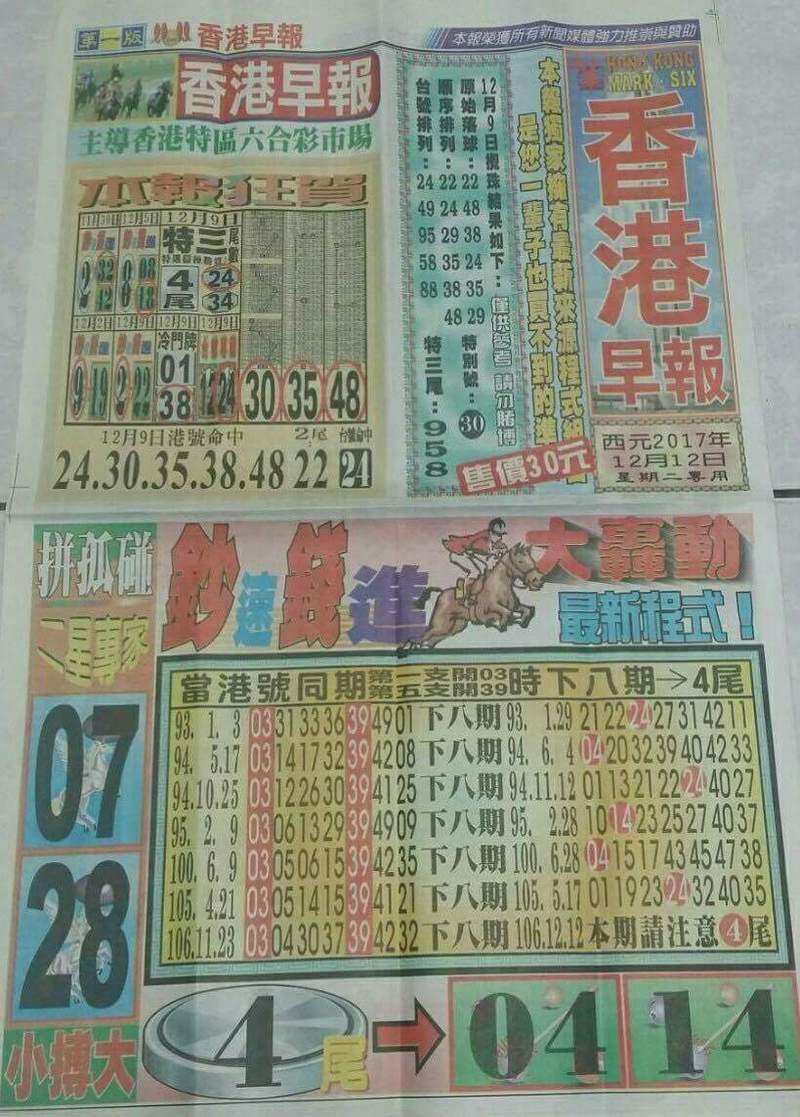 第一版 香港早報
本報榮獲所有新聞媒體強力推崇與贊助
香港早報
主導香港特區六合彩市場
HONG KONG
MARK·SIX
香港早報
西元2017年
12月12日
星期二專用
本報獨家擁有最新來源程式組合
是您一輩子也買不到的準
售價30元
僅供參考 請勿賭博
12月9日攪珠結果如下：
原始落球：22 48 38 24 35 29 特別號：30
順序排列：22 24 29 35 38 48
台號排列：24 49 95 58 88 特三尾：958
本報狂賀
11月30日 12月5日 12月9日
特三尾數
2 32 42
0 08 18
4尾
24
34
12月2日 12月9日 12月9日 12月9日
9 19
2 22
冷門牌
01
38
12 24
30 35 48
12月9日港號命中 2尾 台號命中
24.30.35.38.48 22 24
拼孤碰
二星專家
07
28
小搏大
鈔速錢進
大轟動
最新程式！
當港號同期第一支開03第五支開39時下八期→4尾
93. 1. 3 03 31 33 36 39 49 01 下八期 93. 1.29 21 22 24 27 31 42 11
94. 5.17 03 14 17 32 39 42 08 下八期 94. 6. 4 04 20 32 39 40 42 33
94.10.25 03 12 26 30 39 41 25 下八期 94.11.12 01 13 21 22 24 40 27
95. 2. 9 03 06 13 29 39 49 09 下八期 95. 2.28 10 14 23 25 27 40 37
100. 6. 9 03 05 06 15 39 42 35 下八期 100. 6.28 04 15 17 43 45 47 38
105. 4.21 03 05 14 15 39 41 21 下八期 105. 5.17 01 19 23 24 32 40 35
106.11.23 03 04 30 37 39 42 32 下八期 106.12.12 本期請注意4尾
4尾
04
14